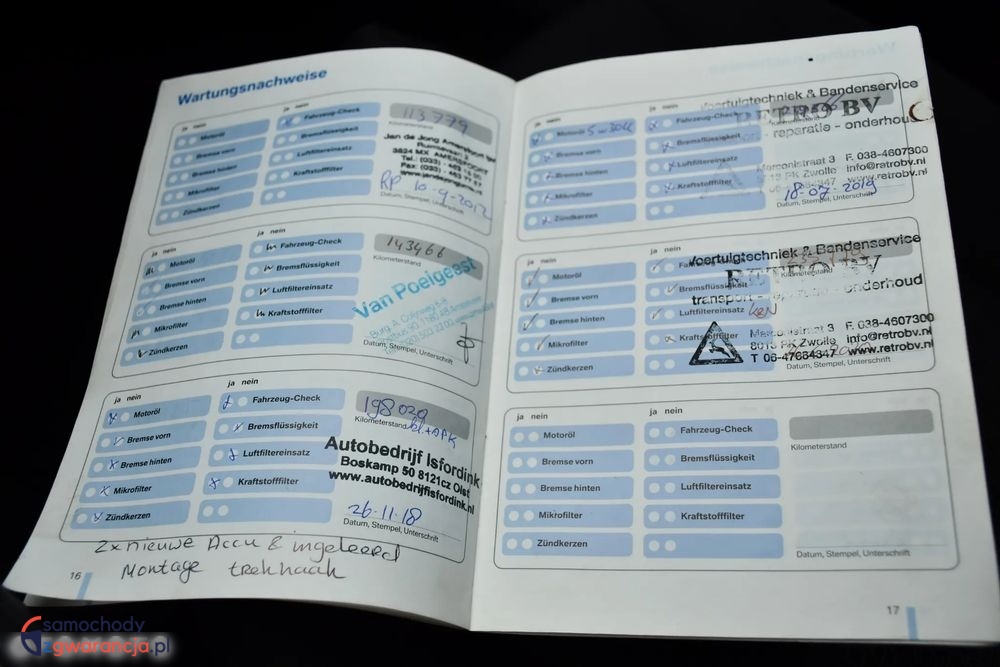 Wartungsnachweise
ja nein
ja nein
Motoröl
Bremse vorn
Bremse hinten
Mikrofilter
Zündkerzen
Fahrzeug-Check
Bremsflüssigkeit
Luftfiltereinsatz
Kraftstofffilter
113779
Kilometerstand
Jan de Jong Amersfoort
3824 MX AMERSFOORT
RP 10-9-2012
Datum, Stempel, Unterschrift
ja nein
ja nein
Motoröl
Bremse vorn
Bremse hinten
Mikrofilter
Zündkerzen
Fahrzeug-Check
Bremsflüssigkeit
Luftfiltereinsatz
Kraftstofffilter
143466
Kilometerstand
Van Poelgeest
Datum, Stempel, Unterschrift
ja nein
ja nein
Motoröl
Bremse vorn
Bremse hinten
Mikrofilter
Zündkerzen
Fahrzeug-Check
Bremsflüssigkeit
Luftfiltereinsatz
Kraftstofffilter
198029
Kilometerstand
Autobedrijf Isfordink
Boskamp 50 8121cz Olst
www.autobedrijfisfordink.nl
26-11-18
Datum, Stempel, Unterschrift
2x nieuwe Accu & ingeleerd
Montage trekhaak
16
ja nein
ja nein
Motoröl 5w30LL
Bremse vorn
Bremse hinten
Mikrofilter
Zündkerzen
Fahrzeug-Check
Bremsflüssigkeit
Luftfiltereinsatz
Kraftstofffilter
Voertuigtechniek & Bandenservice
RETRO BV
- reparatie - onderhoud
Marconistraat 3 F. 038-4607300
PK Zwolle info@retrobv.nl
www.retrobv.nl
18-07-2019
Datum, Stempel, Unterschrift
ja nein
ja nein
Motoröl
Bremse vorn
Bremse hinten
Mikrofilter
Zündkerzen
Fahrzeug-Check
Bremsflüssigkeit
Luftfiltereinsatz
Kraftstofffilter
Kilometerstand
Voertuigtechniek & Bandenservice
RETRO BV
transport - reparatie - onderhoud
Marconistraat 3 F. 038-4607300
8013 PK Zwolle info@retrobv.nl
T 06-47664347 www.retrobv.nl
Datum, Stempel, Unterschrift
ja nein
ja nein
Motoröl
Bremse vorn
Bremse hinten
Mikrofilter
Zündkerzen
Fahrzeug-Check
Bremsflüssigkeit
Luftfiltereinsatz
Kraftstofffilter
Kilometerstand
Datum, Stempel, Unterschrift
17
samochody
zgwarancja.pl